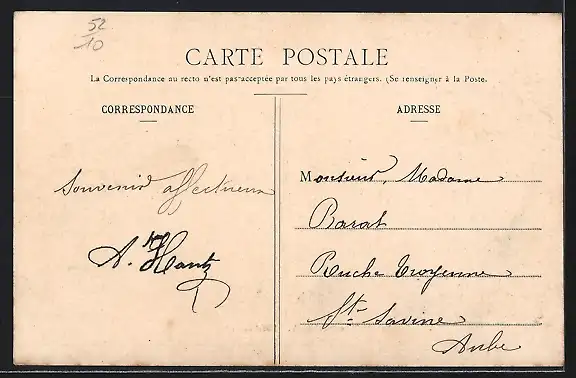 52
10
CARTE POSTALE
La Correspondance au recto n'est pas acceptée par tous les pays étrangers. (Se renseigner à la Poste.
CORRESPONDANCE
Souvenir affectueux
A. Hantz
ADRESSE
Monsieur, Madame
Barat
Ruche Troyenne
Ste Savine
Aube